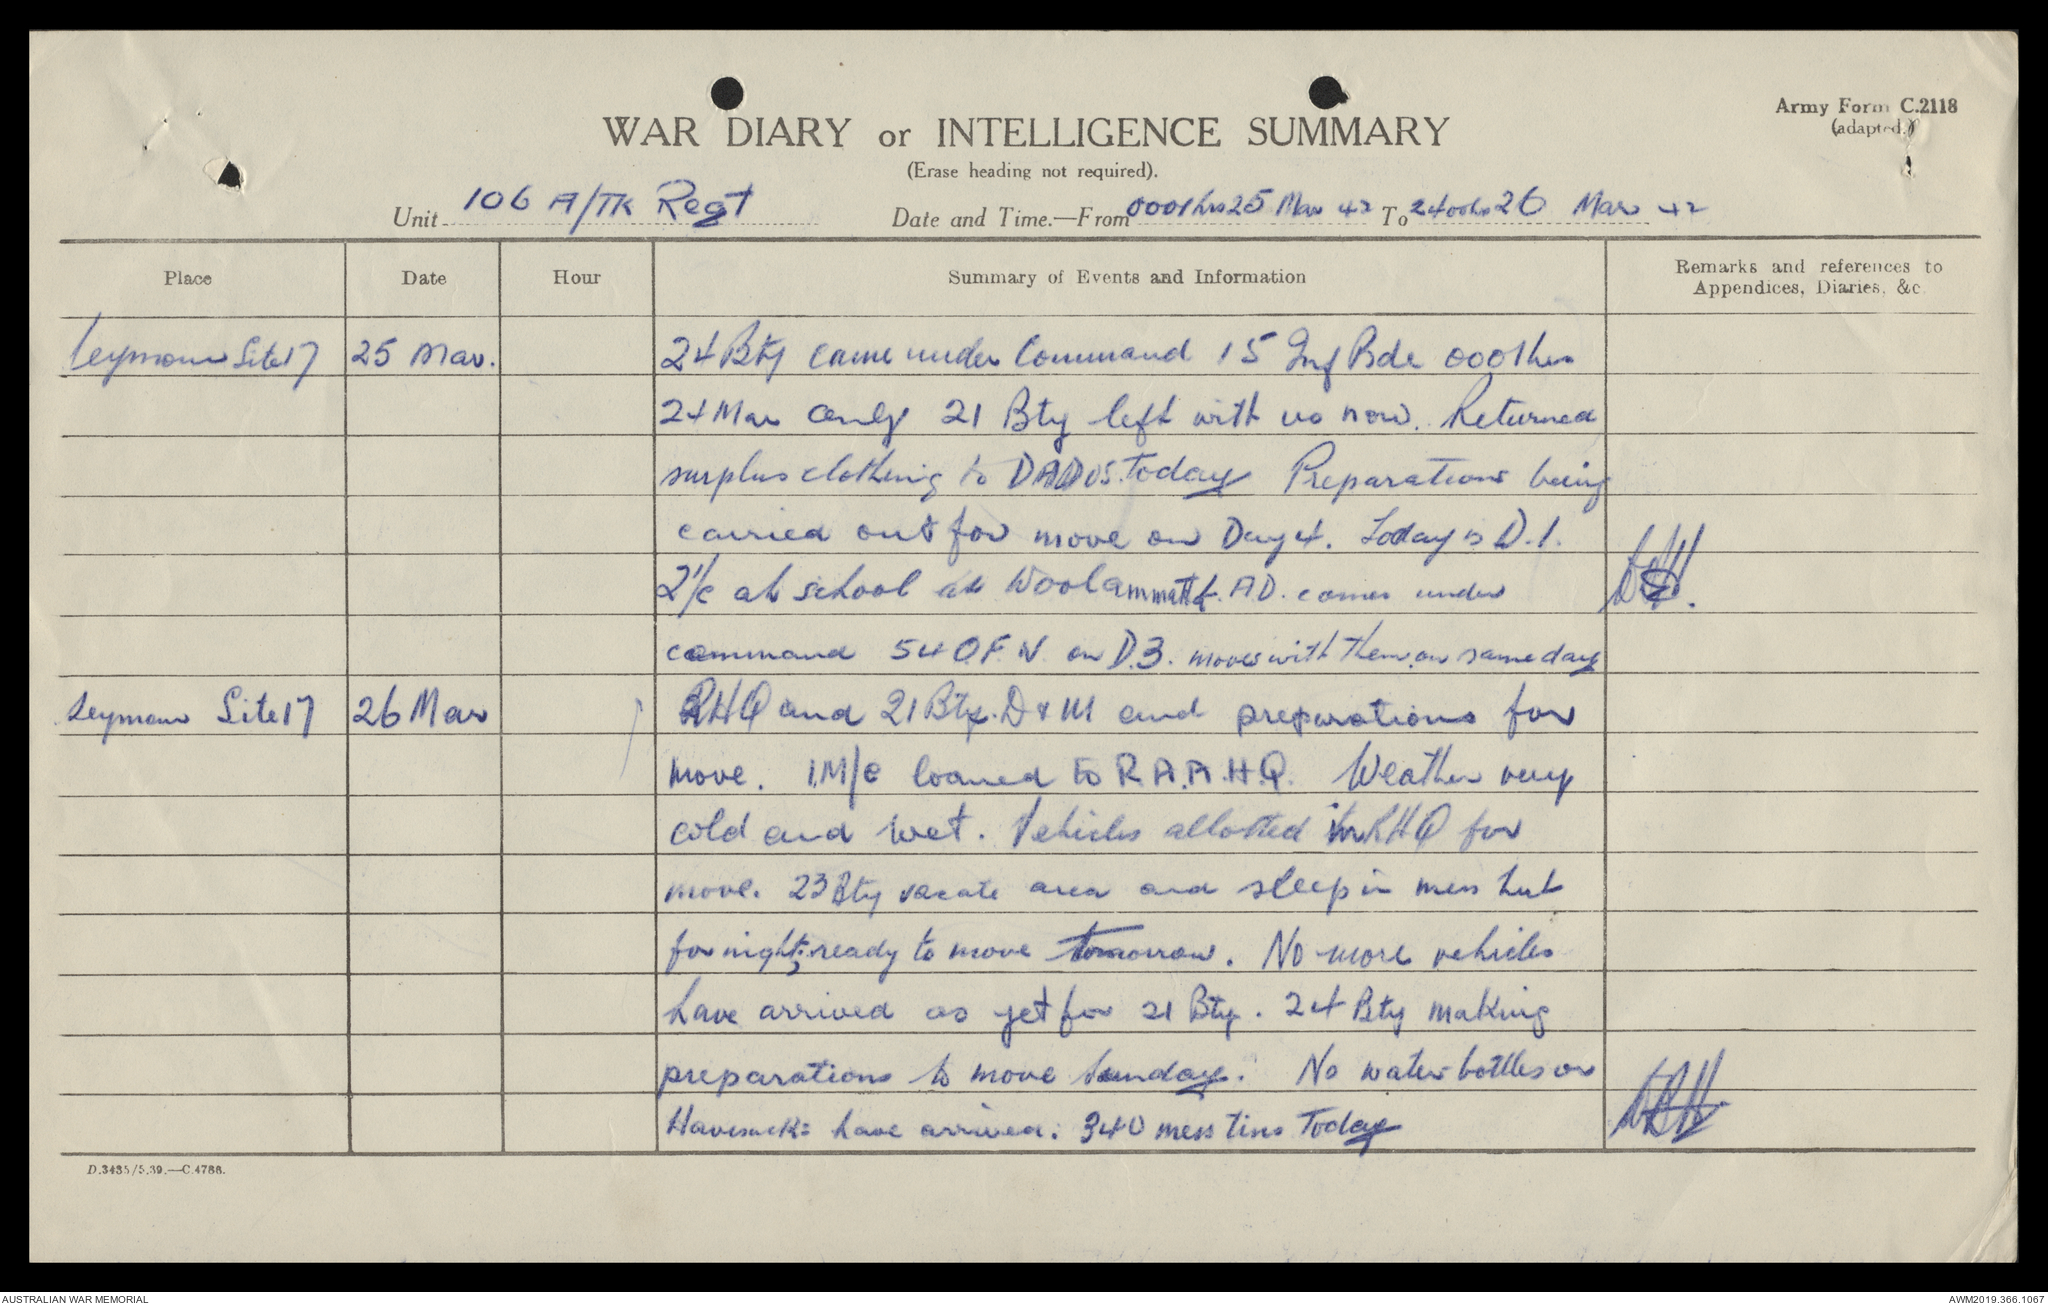 Army Form C.2118
(adapted.)
WAR DIARY or INTELLIGENCE SUMMARY
(Erase heading not required).
Unit 106 A/TK Regt Date and Time.—From 0001hrs 25 Mar 42 To 2400hrs 26 Mar 42
Place Date Hour Summary of Events and Information Remarks and references to
Appendices, Diaries, &c.
Seymour Site 17 25 Mar. 24 Bty came under Command 15 Inf Bde 0001hrs
24 Mar only 21 Bty left with us now. Returned
surplus clothing to DADOS. Today Preparations being
carried out for move on Day 4. Today is D.1.
2i/c at school at AD. comes under
command 54 on D.3. moves with them on same day
Seymour Site 17 26 Mar RHQ and 21 Bty. D & M and preparations for
move. 1 M/c loaned to R.A.A.H.Q. Weather very
cold and wet. Vehicles allotted RHQ for
move. 23 Bty vacate area and sleep in mess hut
for night; ready to move tomorrow. No more vehicles
have arrived as yet for 21 Bty. 24 Bty making
preparations to move Sunday. No water bottles or
Haversacks have arrived. 340 mess tins Today
D.3435/5.39.—C.4788.
AUSTRALIAN WAR MEMORIAL AWM2019.366.1067